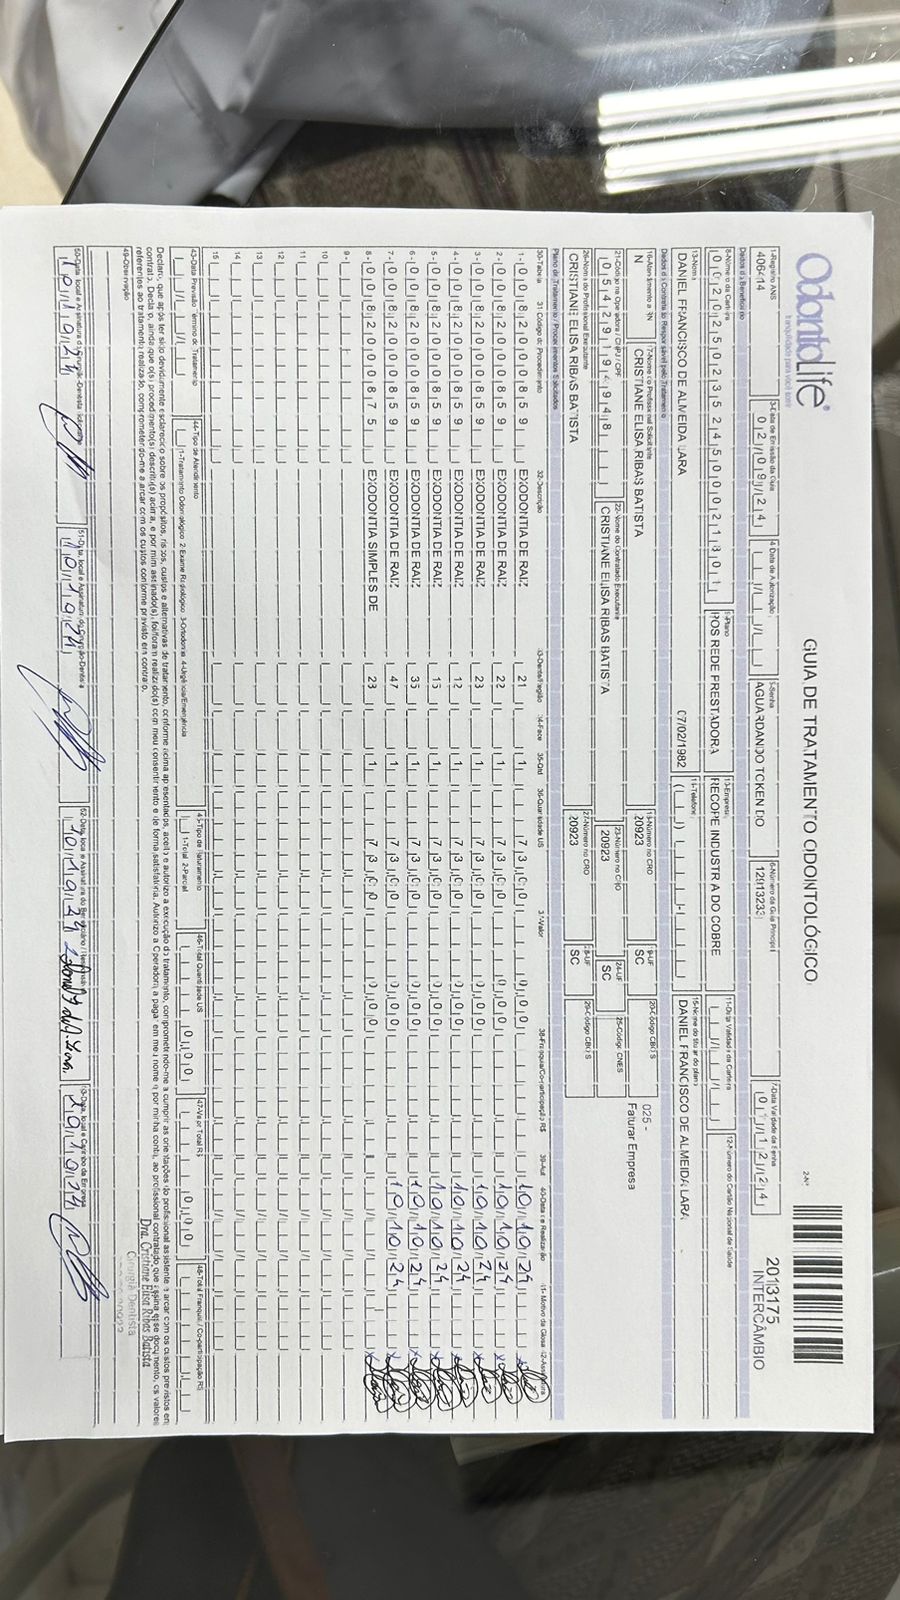 OdontoLife®
tranquilidade para você sorrir
GUIA DE TRATAMENTO ODONTOLÓGICO
2-Nº
2013175
INTERCÂMBIO
1-Registro ANS
406414
3-Data de Emissão da Guia
02/09/24
4-Data de Autorização
5-Senha
AGUARDANDO TOKEN DO
6-Número da Guia Principal
12913233
7-Data Validade da Senha
01/12/24
Dados do Beneficiário
8-Número da Carteira
002025023524500021801
9-Plano
POS REDE PRESTADORA
10-Empresa
RECOPE INDUSTRA DO COBRE
11-Data Validade da Carteira
12-Número do Cartão Nacional de Saúde
13-Nome
DANIEL FRANCISCO DE ALMEIDA LARA
07/02/1982
14-Telefone
15-Nome do titular do plano
DANIEL FRANCISCO DE ALMEIDA LARA
Dados do Contratado Responsável pelo Tratamento
16-Atendimento a RN
N
17-Nome do Profissional Solicitante
CRISTIANE ELISA RIBAS BATISTA
18-Número no CRO
20923
19-UF
SC
20-Código CBO S
025 -
Faturar Empresa
21-Código na Operadora / CNPJ / CPF
05429194948
22-Nome do Contratado Executante
CRISTIANE ELISA RIBAS BATISTA
23-Número no CRO
20923
24-UF
SC
25-Código CNES
26-Nome do Profissional Executante
CRISTIANE ELISA RIBAS BATISTA
27-Número no CRO
20923
28-UF
SC
29-Código CBO S
Plano de Tratamento / Procedimentos Solicitados
30-Tabela 31-Código do Procedimento 32-Descrição 33-Dente/Região 34-Face 35-Qtd 36-Quantidade US 37-Valor 38-Franquia/Co-participação R$ 39-Aut 40-Data de Realização 41-Motivo da Glosa 42-Assinatura
1- 00 82000859 EXODONTIA DE RAIZ 21 1 73,00 0,00 10/10/24
2- 00 82000859 EXODONTIA DE RAIZ 22 1 73,00 0,00 10/10/24
3- 00 82000859 EXODONTIA DE RAIZ 23 1 73,00 0,00 10/10/24
4- 00 82000859 EXODONTIA DE RAIZ 12 1 73,00 0,00 10/10/24
5- 00 82000859 EXODONTIA DE RAIZ 15 1 73,00 0,00 10/10/24
6- 00 82000859 EXODONTIA DE RAIZ 35 1 73,00 0,00 10/10/24
7- 00 82000859 EXODONTIA DE RAIZ 47 1 73,00 0,00 10/10/24
8- 00 82000875 EXODONTIA SIMPLES DE 23 1 73,00 0,00 10/10/24
9-
10
11
12
13
14
15
43-Data Previsão Término do Tratamento
44-Tipo de Atendimento
1-Tratamento Odontológico 2-Exame Radiológico 3-Ortodontia 4-Urgência/Emergência
45-Tipo de Faturamento
1-Total 2-Parcial
46-Total Quantidade US
0,00
47-Valor Total R$
0,00
48-Total Franquia / Co-participação R$
Declaro, que após ter sido devidamente esclarecido sobre os propósitos, riscos, custos e alternativas de tratamento, conforme acima apresentados, aceito e autorizo a execução do tratamento, comprometendo-me a cumprir as orientações do profissional assistente e arcar com os custos previstos em
contrato. Declaro, ainda que o(s) procedimento(s) descrito(s) acima, e por mim assinado(s), foi/foram realizado(s) com meu consentimento e de forma satisfatória. Autorizo a Operadora a pagar em meu nome e por minha conta, ao profissional contratado que assina esse documento, os valores
referentes ao tratamento realizado, comprometendo-me a arcar com os custos conforme previsto em contrato.
Dra. Cristiane Elisa Ribas Batista
Cirurgiã Dentista
49-Observação
50-Data, local e Assinatura do Cirurgião-Dentista Solicitante
51-Data, local e Assinatura do Cirurgião-Dentista
52-Data, local e Assinatura do Beneficiário / Responsável
53-Data, local e Carimbo da Empresa